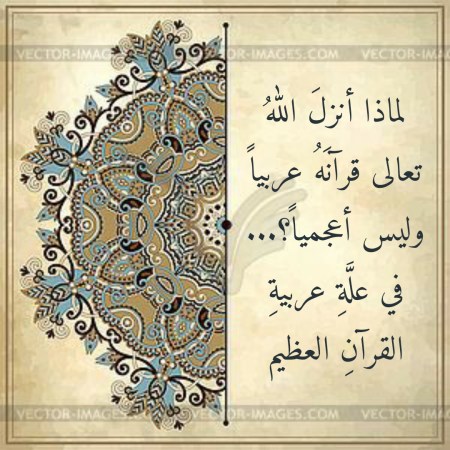 VECTOR-IMAGES.COM VECTOR-IMAGES.COM VECTOR-IMAGES.COM
لماذا أنزلَ اللهُ
تعالى قرآنَهُ عربياً
وليس أعجمياً؟...
في علَّةِ عربيةِ
القرآنِ العظيم
VECTOR-IMAGES.COM VECTOR-IMAGES.COM VECTOR-IMAGES.COM